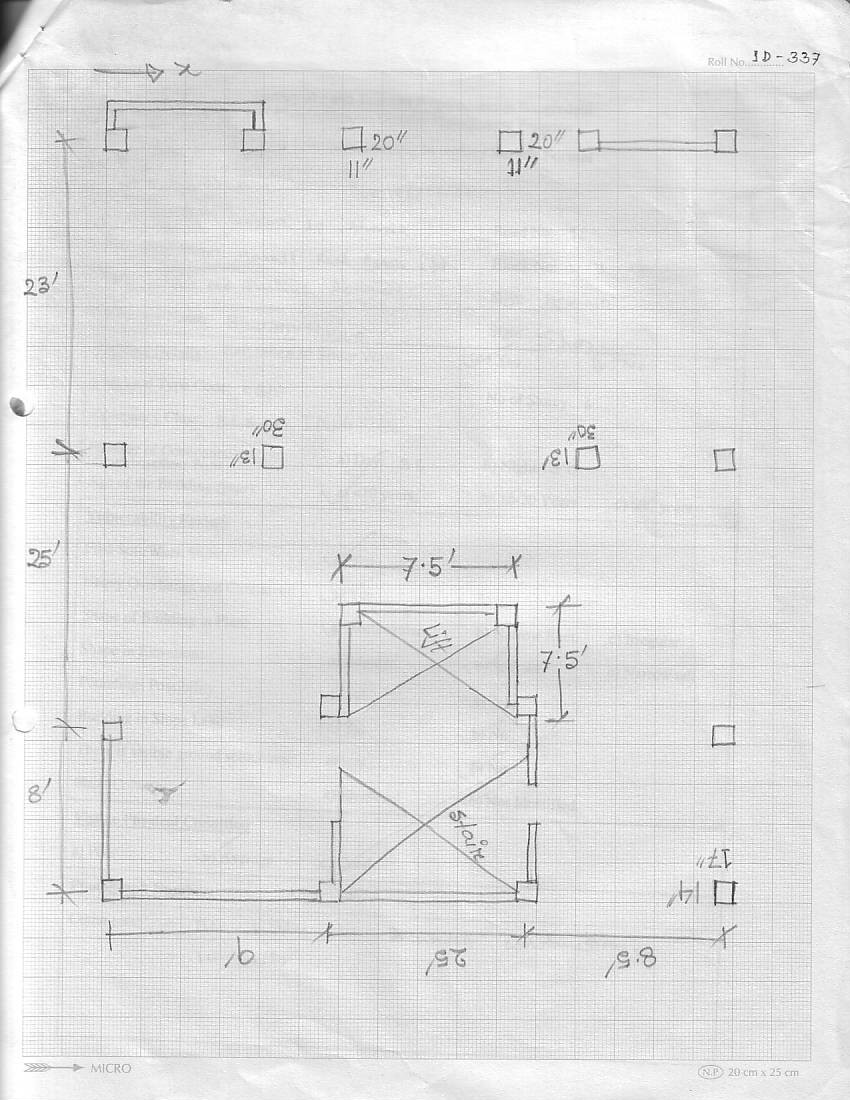 Roll No. ID-337
x
20"
11"
20"
11"
23'
30"
13"
30"
13'
25'
7.5'
Lift
7.5'
8'
Stair
17"
14'
9'
25'
8.5'
MICRO
N.P. 20 cm x 25 cm